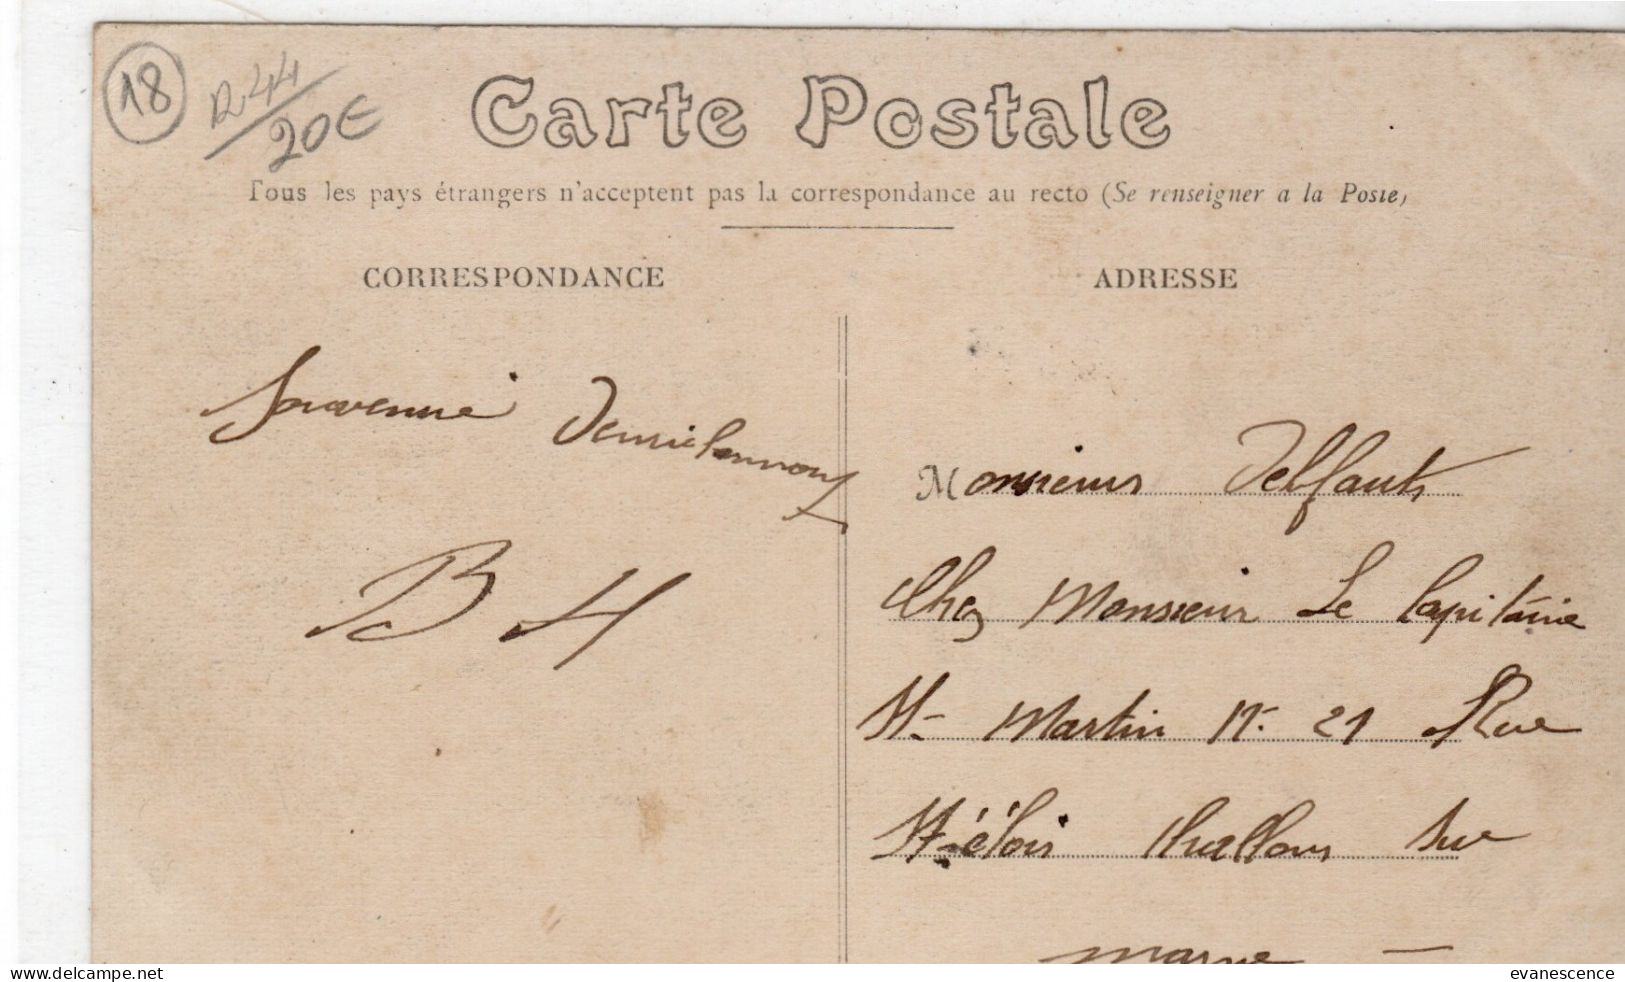 18
R44
20€
Carte Postale
Tous les pays étrangers n'acceptent pas la correspondance au recto (Se renseigner a la Poste)
CORRESPONDANCE
ADRESSE
Souvenir
B H
Monsieur Delfaut
Chez Monsieur Le Capitaine
St- Martin N- 21 Rue
St-éloi Challons sur
marne -
evanescence
delcampe.net